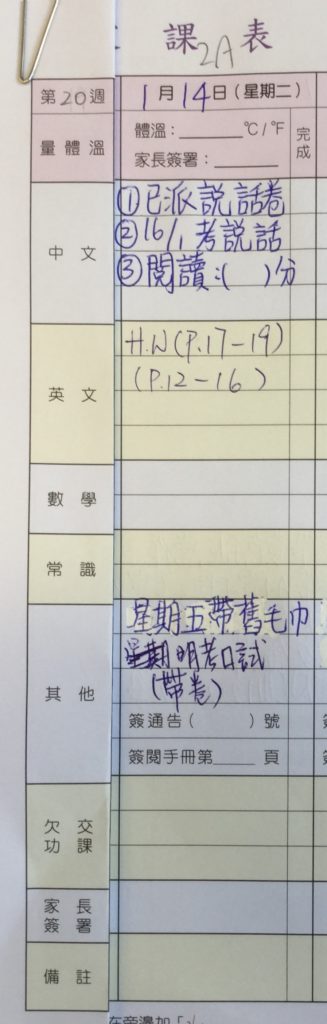 課 2A 表
第20週 1月14日(星期二)
量體溫 體溫:______℃/℉ 完成
家長簽署:______
中文 ①已派說話卷
②16/1 考說話
③閱讀:( )分
英文 H.W(P.17-19)
(P.12-16)
數學
常識
其他 星期五帶舊毛巾
明考口試
(帶卷)
簽通告( )號
簽閱手冊第____頁
欠交功課
家長簽署
備註